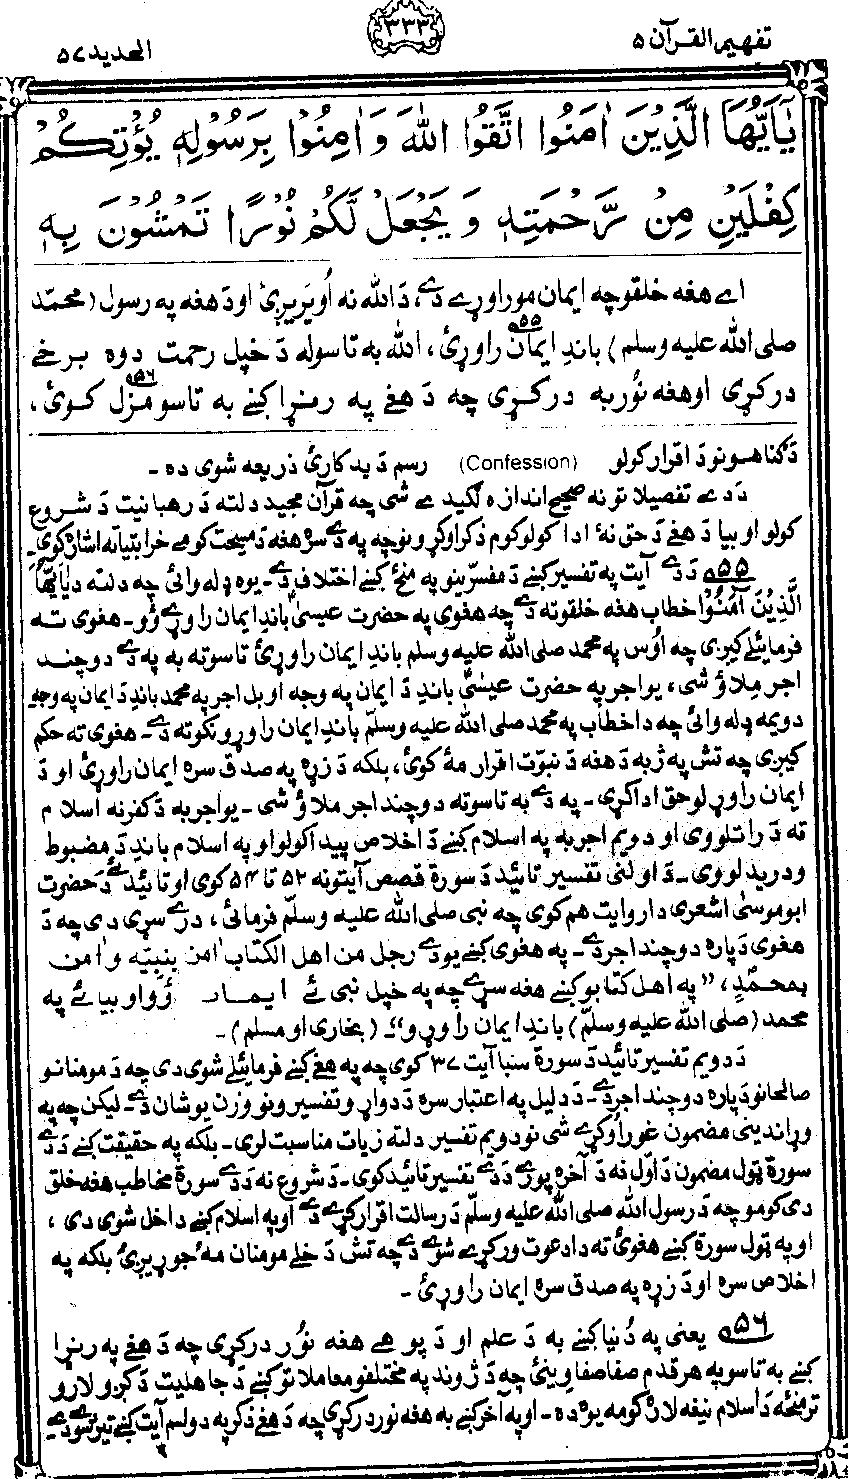 تفهیم القرآن ۵
۳۳۳
الحدید ۵۷
يٰۤاَيُّهَا الَّذِيْنَ اٰمَنُوا اتَّقُوا اللّٰهَ وَ اٰمِنُوْا بِرَسُوْلِهٖ يُؤْتِكُمْ
كِفْلَيْنِ مِنْ رَّحْمَتِهٖ وَ يَجْعَلْ لَّكُمْ نُوْرًا تَمْشُوْنَ بِهٖ
اے هغه خلقو چه ایمان مو راوړے دے، د الله نه اُویریږئ او د هغه په رسول (محمّد
صلی الله علیه وسلم) باندِ ایمان ۵۵ راوړئ، الله به تاسو له د خپل رحمت دوه برخے
درکړی او هغه نُور به درکړی چه د هغے په رنړا کښے به تاسو مزل ۵۶ کوئ،
د ګناهونو د اقرار کولو (Confession) رسم د بدکارئ ذریعه شوی ده -
د دے تفصیلاتو نه صحیح اندازه لګیدے شی چه قرآن مجید دلته د رهبانیت د شروع
کولو او بیا د هغے د حق نه ادا کولو کوم ذکر اوکړو نو چه په دے سره هغه د مسیحت کومے خرابتیا ته اشاره کوی -
۵۵ د دے آیت په تفسیر کښے د مفسّرینو په منځ کښے اختلاف دے - یوه ډله وائی چه دلته د یٰاَیُّهَا
الَّذِیْنَ اٰمَنُوْا خطاب هغه خلقو ته دے چه هغوی په حضرت عیسیٰؑ باندِ ایمان راوړے وُو - هغوی ته
فرمائیلے کیږی چه اوُس په محمد صلی الله علیه وسلم باندِ ایمان راوړئ تاسو ته به په دے دوچند
اجر ملاؤ شی، یو اجر په حضرت عیسٰیؑ باندِ د ایمان په وجه او بل اجر په محمد باندِ د ایمان په وجه
دویمه ډله وائی چه دا خطاب په محمد صلی الله علیه وسلّم باندِ ایمان راوړونکو ته دے - هغوی ته حکم
کیږی چه تش په ژبه د هغه د نبوّت اقرار مهٔ کوئ، بلکه د زړه په صدق سره ایمان راوړئ او د
ایمان راوړلو حق ادا کړی - په دے به تاسو ته دوچند اجر ملاؤ شی - یو اجر به د کفر نه اسلام
ته د راتلو وی او دویم اجر به په اسلام کښے د اخلاص پیدا کولو او په اسلام باندِ د مضبوط
ودریدلو وی - د اولنی تفسیر تائید د سورة قصص آیتونه ۵۲ تا ۵۴ کوی او تائید ئے د حضرت
ابوموسیٰ اشعری دا روایت هم کوی چه نبی صلی الله علیه وسلّم فرمائی، درے سړی دی چه د
هغوی دپاره دوچند اجر دے - په هغوی کښے یو دے رجل من اهل الکتاب اٰمن بنبیّه و اٰمن
بمحمّدٍ، "په اهل کتابو کښے هغه سړے چه په خپل نبی ئے ایمان وُو او بیا ئے په
محمد (صلی الله علیه وسلّم) باندِ ایمان راوړو" - (بخاری او مسلم) -
د دویم تفسیر تائید د سورة سبا آیت ۳۷ کوی چه په هغے کښے فرمائیلے شوی دی چه د مومنانو
صالحانو دپاره دوچند اجر دے - د دلیل په اعتبار سره د دواړو تفسیرونو وزن یو شان دے - لیکن چه په
وړاندینی مضمون غور اوکړے شی نو دویم تفسیر دلته زیات مناسبت لری - بلکه په حقیقت کښے د دے
سورة ټول مضمون د اوّل نه د آخره پورے د دے تفسیر تائید کوی - د شروع نه د دے سورة مخاطب هغه خلق
دی کومو چه د رسول الله صلی الله علیه وسلّم د رسالت اقرار کړے دے او په اسلام کښے داخل شوی دی،
او په ټول سورة کښے هغوئ ته دا دعوت ورکړے شوے دے چه تش د خلے مومنان مهٔ جوړیږئ بلکه په
اخلاص سره او د زړه په صدق سره ایمان راوړئ -
۵۶ یعنی په دُنیا کښے به د علم او د پوهے هغه نُور درکړی چه د هغے په رنړا
کښے به تاسو په هر قدم صفا صفا وینئ چه د ژوند په مختلفو معاملاتو کښے د جاهلیت د کږو لارو
ترمنځه د اسلام نیغه لار کومه یوه ده - او په آخر کښے به هغه نور درکړی چه د هغے ذکر په دولسم آیت کښے تیر شوے دے -